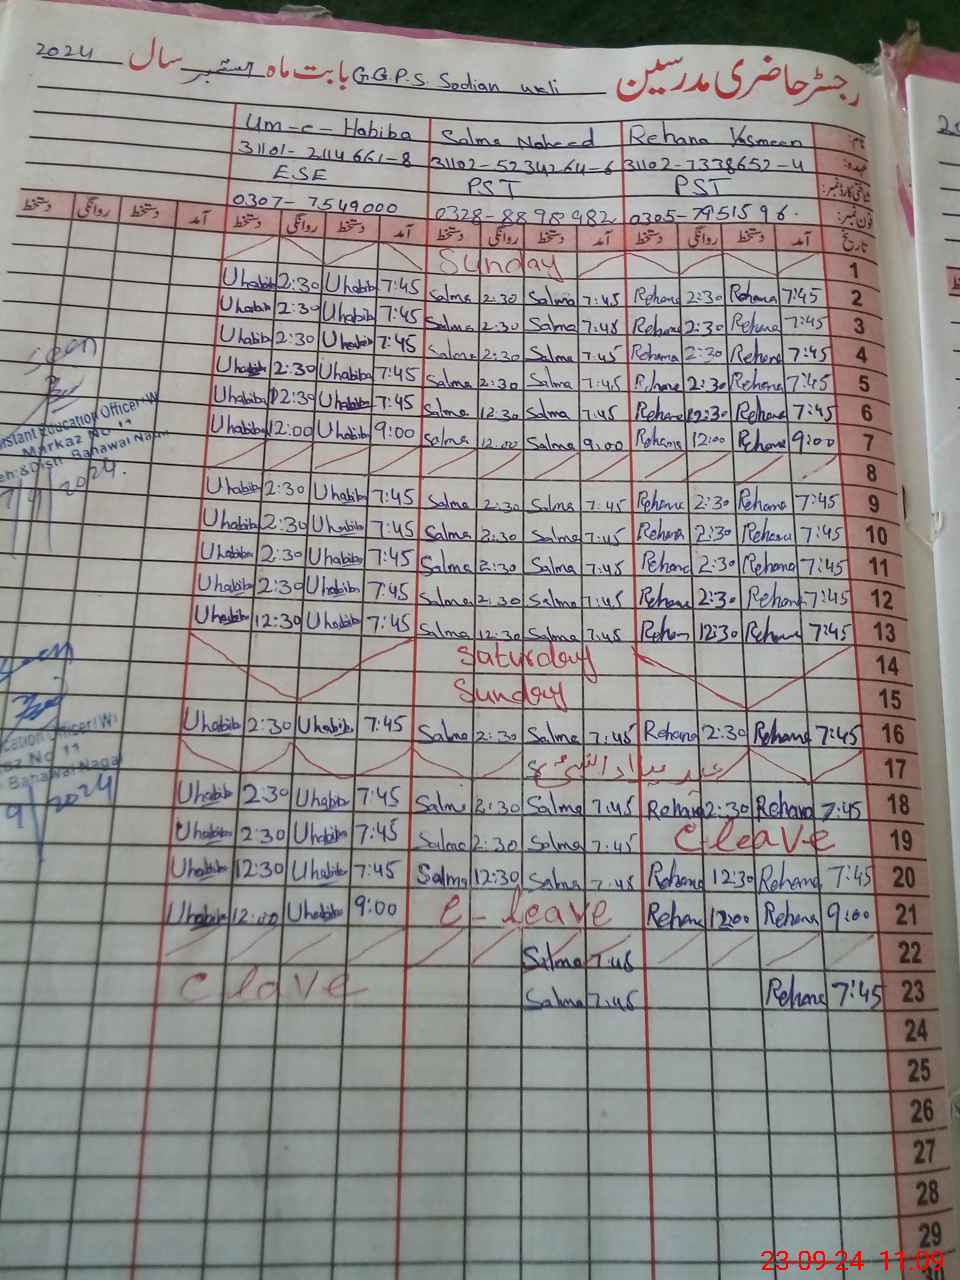 رجسٹر حاضری مدرسین G.G.P.S. Sodian wali بابت ماہ ستمبر سال 2024
نام: Rehana Yasmeen Salma Naheed Um-e-Habiba
عہدہ: 31102-7338652-4 31102-5234264-6 31101-2114661-8
شناختی کارڈ نمبر: PST PST ESE
فون نمبر: 0305-7951596. 0328-8898982 0307-7549000
تاریخ آمد دستخط روانگی دستخط آمد دستخط روانگی دستخط آمد دستخط روانگی دستخط آمد دستخط روانگی دستخط
1 Sunday
2 7:45 Rehana 2:30 Rehana 7:45 Salma 2:30 Salma 7:45 Uhabib 2:30 Uhabib
3 7:45 Rehana 2:30 Rehana 7:45 Salma 2:30 Salma 7:45 Uhabib 2:30 Uhabib
4 7:45 Rehana 2:30 Rehana 7:45 Salma 2:30 Salma 7:45 Uhabib 2:30 Uhabib
5 7:45 Rehana 2:30 Rehana 7:45 Salma 2:30 Salma 7:45 Uhabiba 2:30 Uhabib
6 7:45 Rehana 12:30 Rehana 7:45 Salma 12:30 Salma 7:45 Uhabib 12:30 Uhabib
7 9:00 Rehana 12:00 Rehana 9:00 Salma 12:00 Salma 9:00 Uhabib 12:00 Uhabib
8
9 7:45 Rehana 2:30 Rehana 7:45 Salma 2:30 Salma 7:45 Uhabib 2:30 Uhabib
10 7:45 Rehana 2:30 Rehana 7:45 Salma 2:30 Salma 7:45 Uhabib 2:30 Uhabib
11 7:45 Rehana 2:30 Rehana 7:45 Salma 2:30 Salma 7:45 Uhabib 2:30 Uhabiba
12 7:45 Rehana 2:30 Rehana 7:45 Salma 2:30 Salma 7:45 Uhabib 2:30 Uhabib
13 7:45 Rehana 12:30 Rehan 7:45 Salma 12:30 Salma 7:45 Uhabib 12:30 Uhabib
14 Saturday
15 Sunday
16 7:45 Rehana 2:30 Rehana 7:45 Salma 2:30 Salma 7:45 Uhabib 2:30 Uhabib
17 عید میلاد النبی
18 7:45 Rehana 2:30 Rehana 7:45 Salma 2:30 Salma 7:45 Uhabib 2:30 Uhabib
19 C leave 7:45 Salma 2:30 Salma 7:45 Uhabib 2:30 Uhabib
20 7:45 Rehana 12:30 Rehana 7:45 Salma 12:30 Salma 7:45 Uhabib 12:30 Uhabib
21 9:00 Rehana 12:00 Rehana C-leave 9:00 Uhabib 12:00 Uhabib
22 7:45 Salma
23 7:45 Rehana 7:45 Salma C lave
24
25
26
27
28
29
30
Seen
Assistant Education Officer-W
Markaz No 11
Teh: & Distt Bahawal Nagar
2024.
Seen
Education Officer W
Markaz No 11
Bahawal Nagar
9 2024
23-09-24 11:09